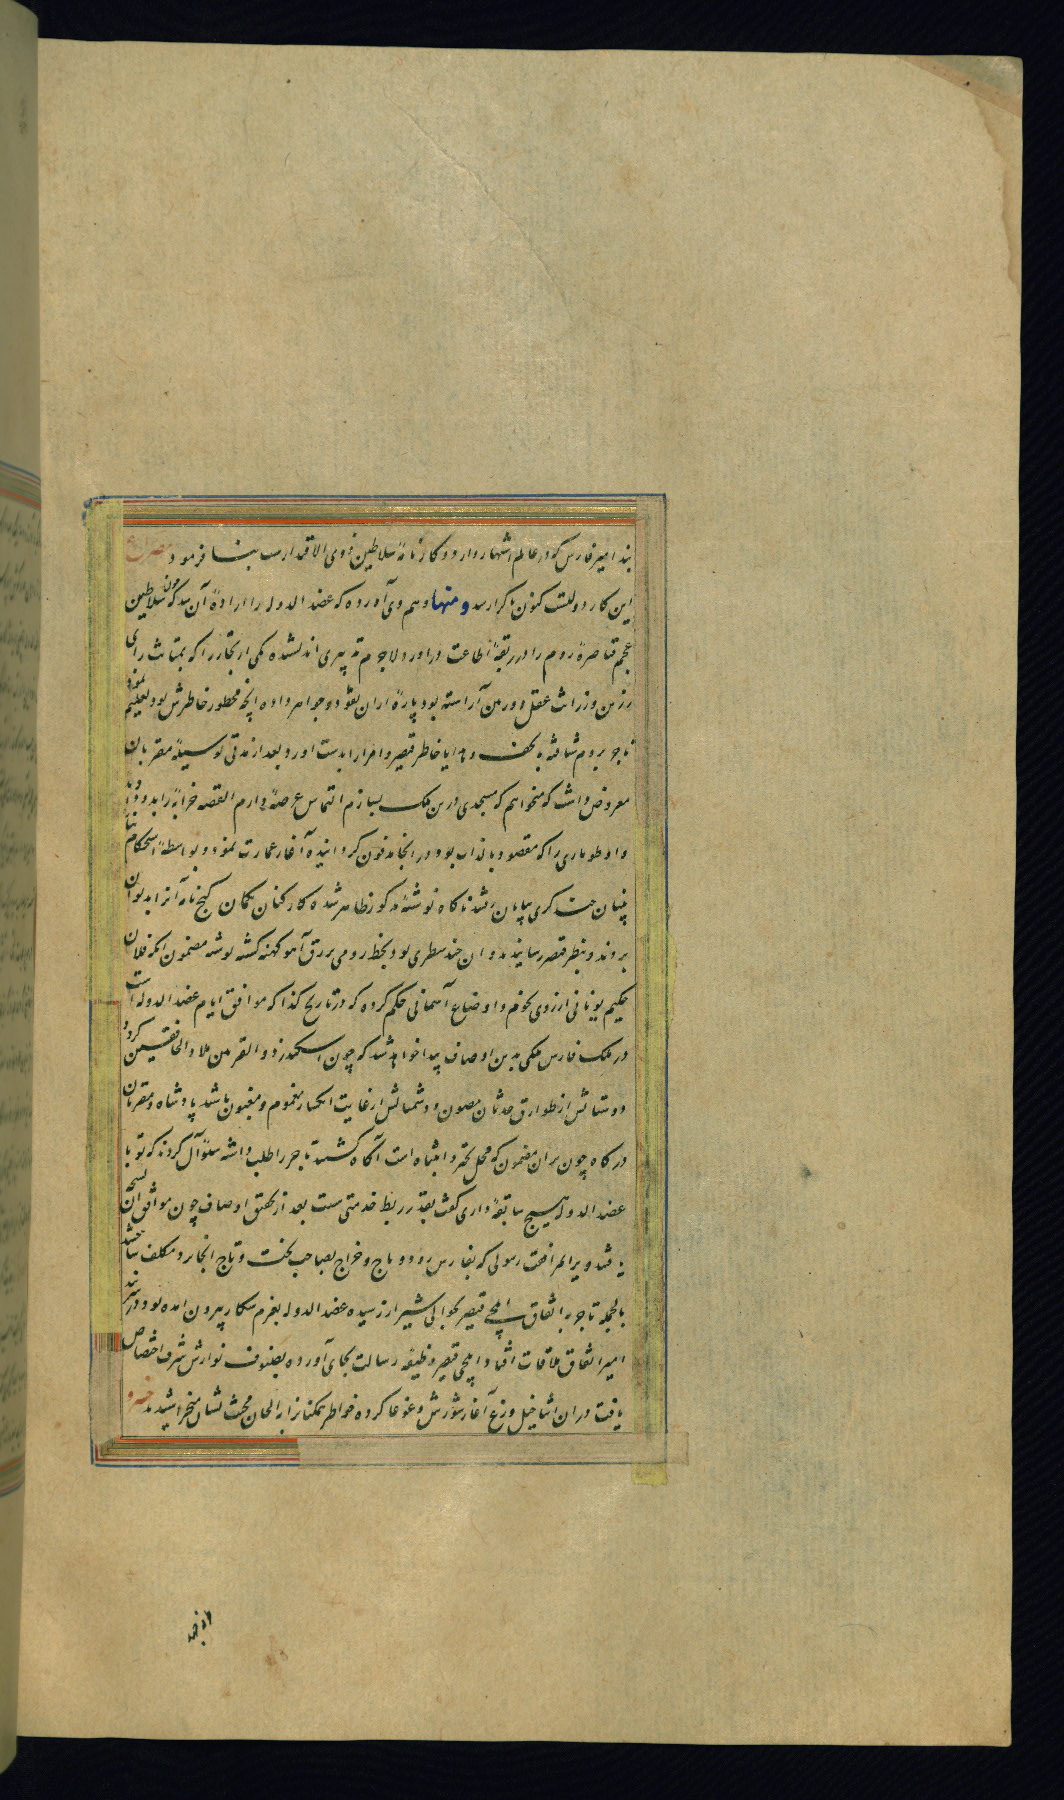 بند امیر فارس که در عالم اشتهار دارد و کارنامهٔ سلاطین ذوی الاقتدارست بنا فرمود مصراع
این کار دولتست کنون تا کرا رسد ومنها وهم وی آورده که عضد الدوله را ارادهٔ آن شد که چون سلاطین
عجم قیاصرهٔ روم را در ربقهٔ اطاعت درآورد ولاجرم تدبیری اندیشیده یکی از تجار را که بمتانت رای
رزین و رزانت عقل دوربین آراسته بود پارهٔ ازان نقود و جواهر داده آنچه محظور خاطرش بود تعلیم نمود
تاجر بروم شتافته بتحف و هدایا خاطر قیصر و امرا را بدست آورد و بعد از مدتی بوسیلهٔ مقربان
معروض داشت که میخواهم که مسجدی درین ملک بسازم التماس عرصهٔ دارم القصه خرابهٔ را بدو دادند
و او طوماری را که مقصود بالذات بود در انجا مدفون گردانیده آغاز عمارت نمود و بواسطهٔ استحکام بنا
بنیان حفر کرده بپایان رسید ناگاه نوشتهٔ مذکور ظاهر شده کارکنان بگمان گنج نامه آنرا بدیوان
بردند و بنظر قیصر رسانیدند و آن چند سطری بود بخط رومی بر رق آهو کهنه گشته نوشته مضمون انکه فلان
حکیم یونانی از روی نجوم و اوضاع آسمانی حکم کرده که در تاریخ کذا که موافق ایام عضد الدوله است
در ملک فارس ملکی بدین اوصاف پیدا خواهد شد که چون اسکندر ذو القرنین ملاذ الخافقین گردد
دوستانش از طوارق حدثان مصون و دشمنانش از غایت انکسار مغموم و مغبون باشد پادشاه و مقربان
درگاه چون بران مضمون که محل تحیر و انتباه است آگاه گشتند تاجر را طلب داشته سؤال کردند که تو با
عضد الدوله هیچ سابقهٔ داری گفت بقدر ربط خدمتی هست بعد از تحقیق اوصاف چون موافق آن نسخه
یافتند ویرا مرافقت رسولی که بفارس رود و باج و خراج بصاحب تخت و تاج انجا برد مکلف ساختند
بالجمله تاجر باتفاق ایلچی قیصر بحوالی شیراز رسیده عضد الدوله بعزم شکار بیرون آمده بود و در اثنا
امیر اتفاق ملاقات افتاد و ایلچی قیصر وظیفه رسالت بجای آورده بصنوف نوازش شرف اختصاص
یافت دران اثنا خیل وزغ آغاز شورش و غوغا کرده خواطر همکنانرا بالحان محنت نشان میخراشیدند